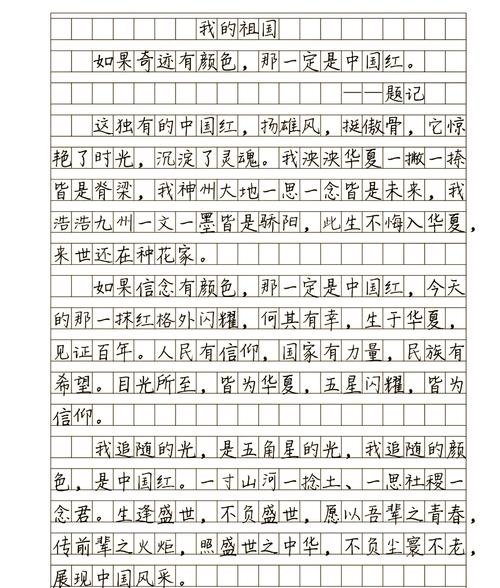 我的祖国
如果奇迹有颜色，那一定是中国红。
——题记
这独有的中国红，扬雄风，挺傲骨，它惊
艳了时光，沉淀了灵魂。我泱泱华夏一撇一捺
皆是脊梁，我神州大地一思一念皆是未来，我
浩浩九州一文一墨皆是骄阳，此生不悔入华夏，
来世还在种花家。
如果信念有颜色，那一定是中国红，今天
的那一抹红格外闪耀，何其有幸，生于华夏，
见证百年。人民有信仰，国家有力量，民族有
希望。目光所至，皆为华夏，五星闪耀，皆为
信仰。
我追随的光，是五角星的光，我追随的颜
色，是中国红。一寸山河一捻土、一思社稷一
念君。生逢盛世，不负盛世，愿以吾辈之青春，
传前辈之火炬，照盛世之中华，不负尘寰不老，
展现中国风采。